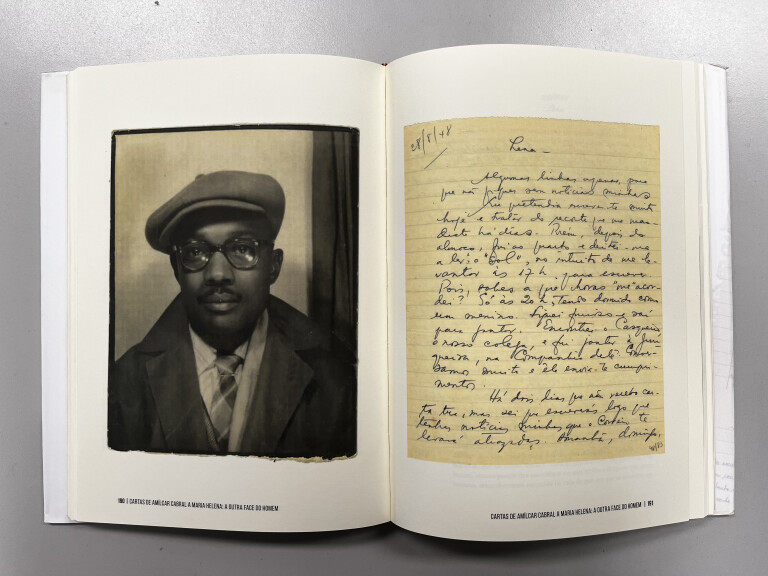 190 | CARTAS DE AMÍLCAR CABRAL A MARIA HELENA: A OUTRA FACE DO HOMEM
28/8/48
Lena –
Algumas linhas apenas, para
que não fiques sem notícias minhas.
Eu pretendia escrever-te muito
hoje e tratar do recorte que me man-
daste há dias. Porém, depois do
almoço, fui ao quarto e deitei-me
a ler o "Sol", no intuito de me le-
vantar às 17 h. para escrever.
Pois, sabes a que horas "me" acor-
dei? Só às 20 h, tendo dormido como
um menino. Fiquei furioso e saí
para jantar. Encontrei o Casqueiro
o nosso colega, e fui jantar à Jun-
queira, na Companhia dele
muito e ele envia-te cumpri-
mentos.
Há dois dias que não recebo car-
ta tua, mas sei que escreverás logo que
tenhas notícias minhas que o Correio te
levará Amanhã, domingo,
CARTAS DE AMÍLCAR CABRAL A MARIA HELENA: A OUTRA FACE DO HOMEM | 191